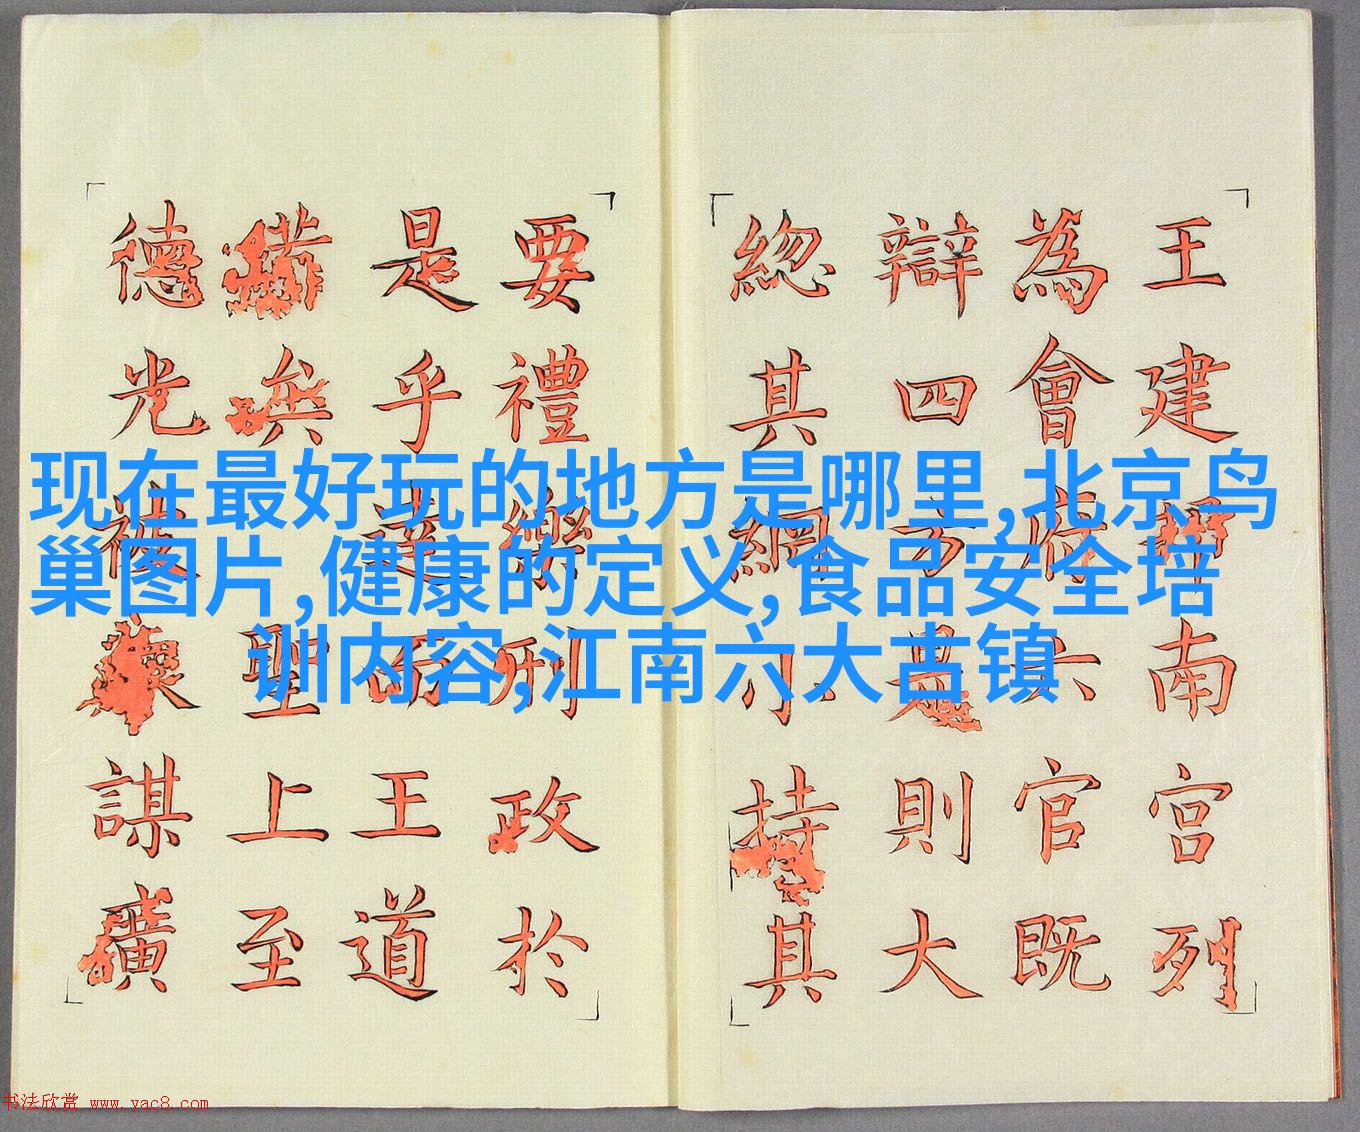 王建南宮列
為會府六官既
辯四方是則大
總其綱小持其
要禮樂刑政於
是乎達而王道
備矣聖上至
德光被謀廣
现在最好玩的地方是哪里,北京鸟
巢图片,健康的定义,食品安全培
训内容,江南六大古镇
书法欣赏 www.yac8.com